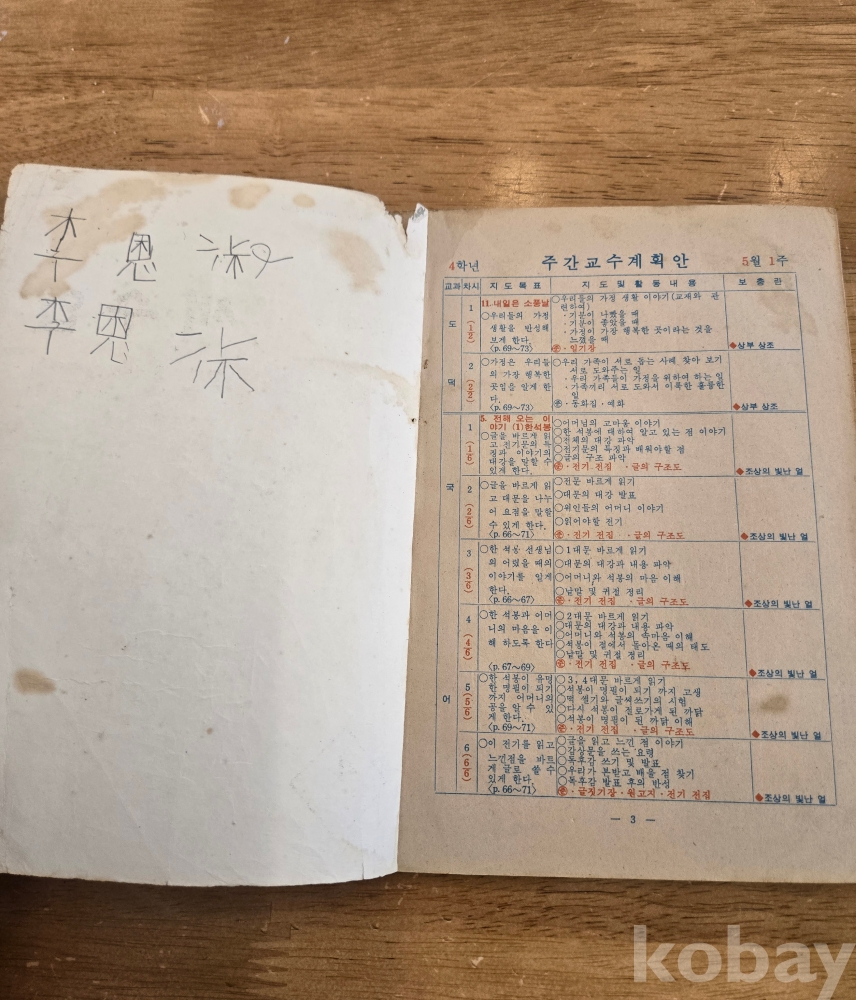 李 恩 淑
李 恩
4학년 주간교수계획안 5월 1주
교과 차시 지도목표 지도및활동내용 보충란
도덕
1 (1/2)
11. 내일은 소풍날
○우리들의 가정
생활을 반성해
보게 한다.
<p. 69~73>
○우리들의 가정 생활 이야기(교재와 관
련하여)
· 기분이 나빴을 때
· 기분이 좋았을 때
· 가정이 가장 행복한 곳이라는 것을
느꼈을 때
· 일기장
◆상부 상조
2 (2/2)
○가정은 우리들
의 가장 행복한
곳임을 알게 한
다.
<p. 69~73>
○우리 가족이 서로 돕는 사례 찾아 보기
서로 도와주는 일
· 우리 가족들이 가정을 위하여 하는 일
· 가족끼리 서로 도와서 이룩한 훌륭한
일
· 동화집 · 예화
◆상부 상조
국어
1 (1/6)
5. 전해 오는 이
야기 (1)한석봉
○글을 바르게 읽
고 전기문의 특
징과 이야기의
대강을 말할 수
있게 한다.
○어머님의 고마움 이야기
○한 석봉에 대하여 알고 있는 점 이야기
○전체의 대강 파악
○전기문의 특징과 배워야할 점
○글의 구조 파악
· 전기 전집 · 글의 구조도
◆조상의 빛난 얼
2 (2/6)
○글을 바르게 읽
고 대문을 나누
어 요점을 말할
수 있게 한다.
<p. 66~71>
○전문 바르게 읽기
○대문의 대강 발표
○위인들의 어머니 이야기
○읽어야할 전기
· 전기 전집 · 글의 구조도
◆조상의 빛난 얼
3 (3/6)
○한 석봉 선생님
의 어렸을 때의
이야기를 읽게
한다.
<p. 66~67>
○1대문 바르게 읽기
○대문의 대강과 내용 파악
○어머니와 석봉의 마음 이해
○낱말 및 귀절 정리
· 전기 전집 · 글의 구조도
◆조상의 빛난 얼
4 (4/6)
○한 석봉과 어머
니의 마음을 이
해 하도록 한다
<p. 67~69>
○2대문 바르게 읽기
○대문의 대강과 내용 파악
○어머니와 석봉의 속마음 이해
○석봉이 절에서 돌아온 때의 태도
○낱말 및 귀절 정리
· 전기 전집 · 글의 구조도
◆조상의 빛난 얼
5 (5/6)
○한 석봉이 유명
한 명필이 되기
까지 어머니의
공을 알 수 있
게 한다.
<p. 69~71>
○3, 4대문 바르게 읽기
○석봉이 명필이 되기 까지 고생
○떡 썰기와 글씨쓰기의 시험
○다시 석봉이 절로가게 된 까닭
○석봉이 명필이 된 까닭 이해
· 전기 전집 · 글의 구조도
◆조상의 빛난 얼
6 (6/6)
○이 전기를 읽고
느낀점을 바르
게 글로 쓸 수
있게 한다.
<p. 66~71>
○글을 읽고 느낀 점 이야기
○감상문을 쓰는 요령
○독후감 쓰기 및 발표
○우리가 본받고 배울 점 찾기
○독후감 발표 후의 반성
· 글짓기장 · 원고지 · 전기 전집
◆조상의 빛난 얼
— 3 —
kobay